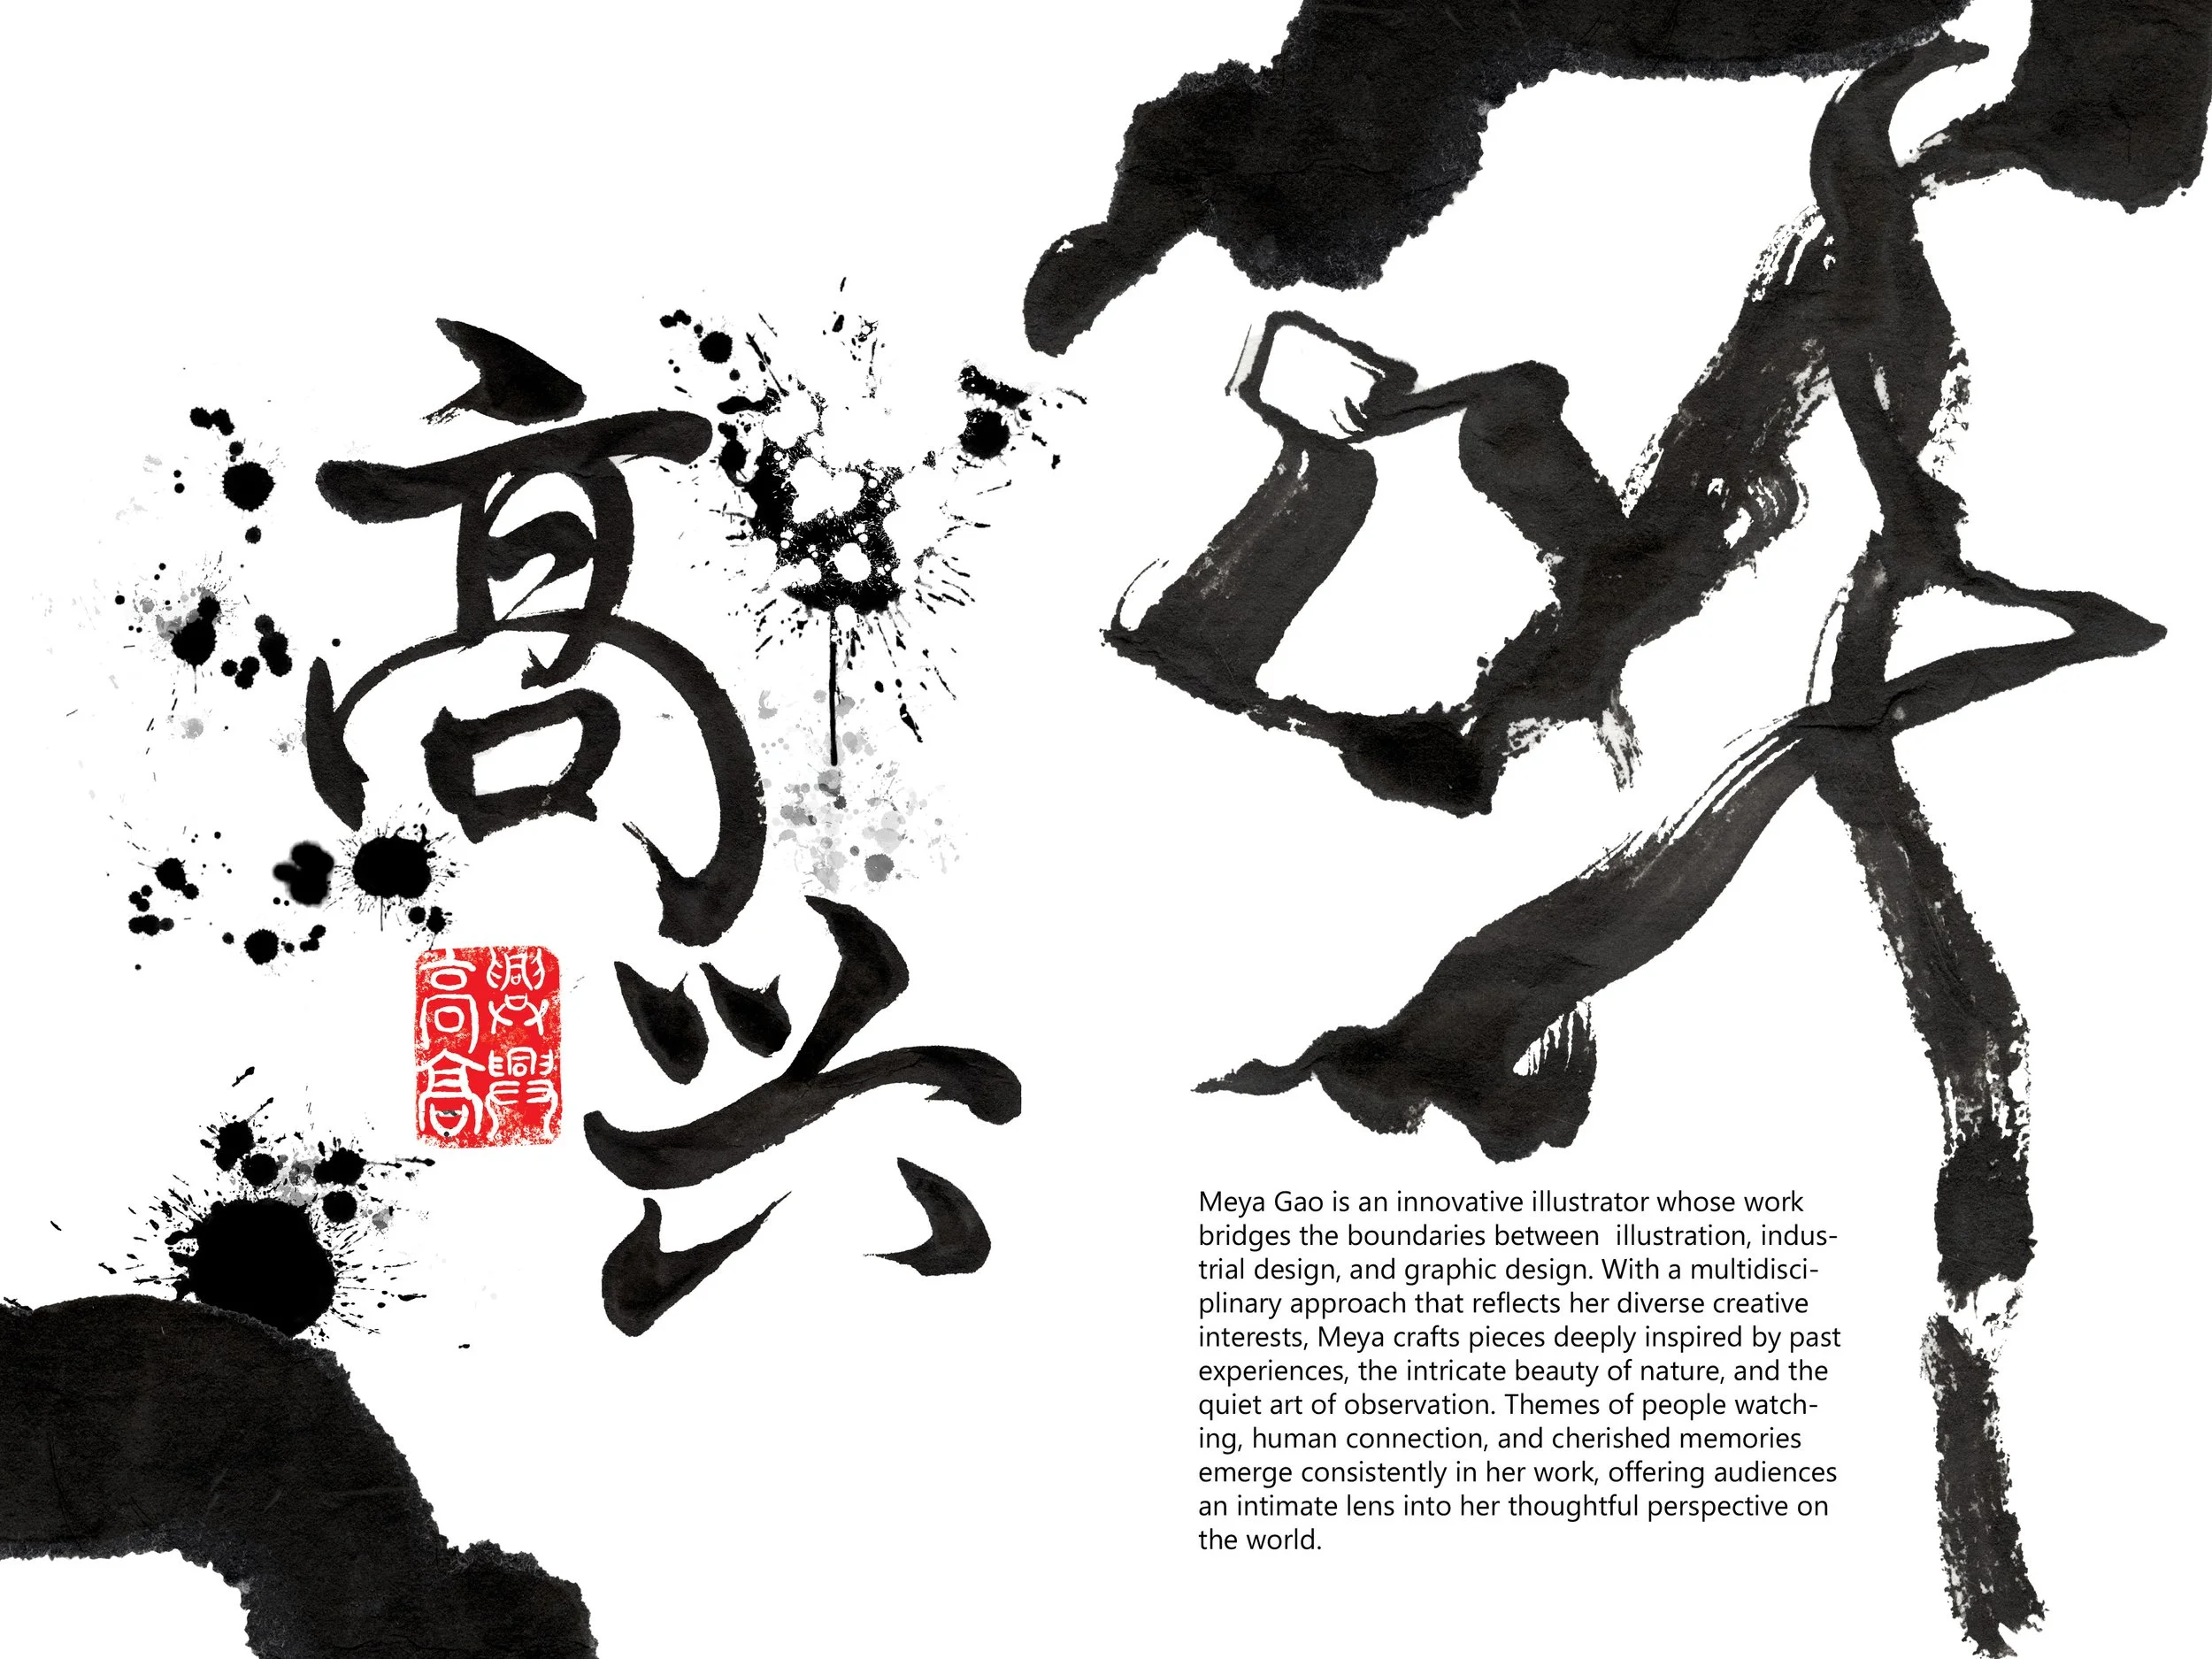 高
兴
Meya Gao is an innovative illustrator whose work
bridges the boundaries between  illustration, indus-
trial design, and graphic design. With a multidisci-
plinary approach that reflects her diverse creative
interests, Meya crafts pieces deeply inspired by past
experiences, the intricate beauty of nature, and the
quiet art of observation. Themes of people watch-
ing, human connection, and cherished memories
emerge consistently in her work, offering audiences
an intimate lens into her thoughtful perspective on
the world.